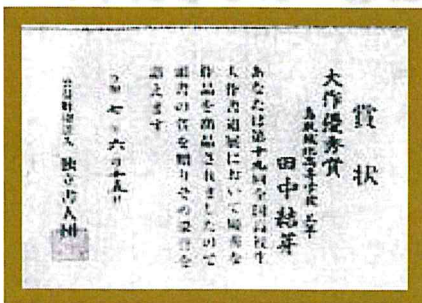 賞状
大作優秀賞
鳥取城北高等学校 三年
田中結芽
あなたは第十九回全国高校生
大作書道展において優秀な
作品を出品されましたので
頭書の賞を贈りその栄誉を
讃えます
令和七年六月十五日
公益財団法人 独立書人団